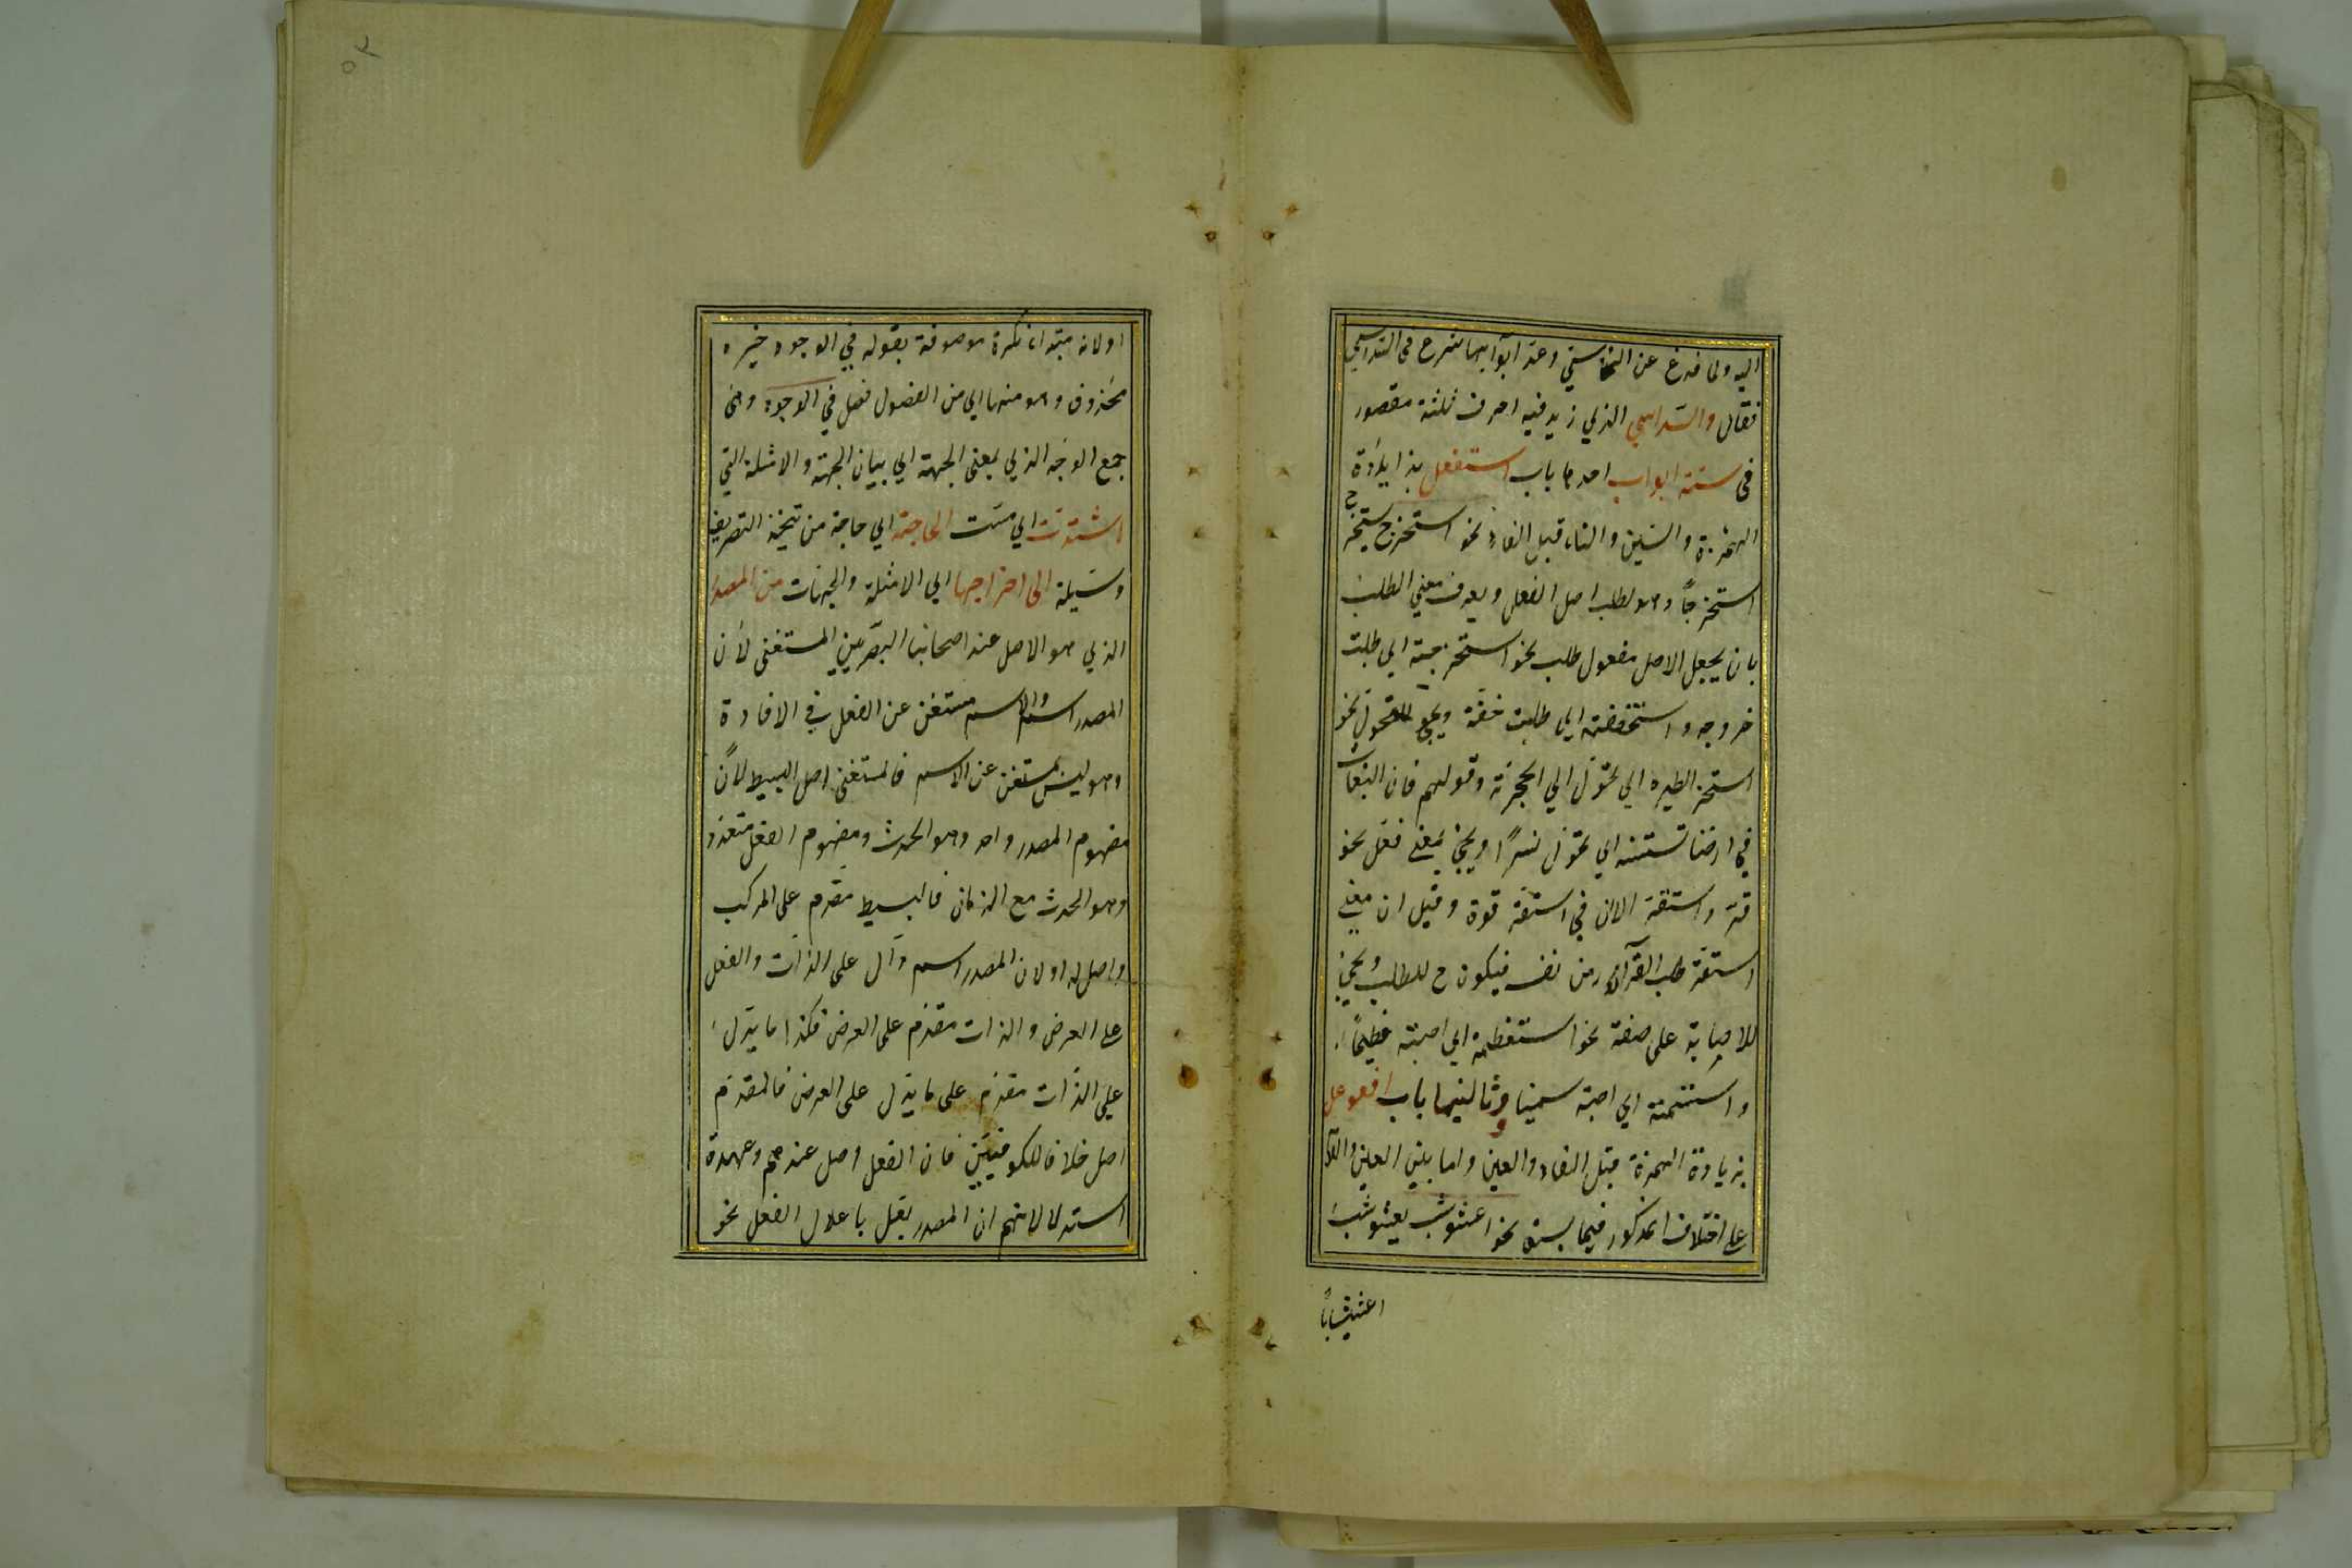 اليه ولما فرغ عن الخماسي وعد ابوابها شرع في السداسي
فقال والسداسي الذي زيد فيه احرف ثلثة مقصور
في ستة ابواب احدها باب استفعل بزيادة
الهمزة والسين والتاء قبل الفاء نحو استخرج يستخرج
استخرجاً وهو لطلب اصل الفعل ويعرف معنى الطلب
بان يجعل الاصل مفعول طلب نحو استخرجته اي طلبت
خروجه و استخففته اي طلبت خفة ويجئ للتحول نحو
استحجر الطين اي تحول الي الحجرية وقولهم فان البغاث
في ارضنا تستنسر اي تحول نسرًا ويجئ بمعنى فعل نحو
قر واستقر الان في استقر قوة وقيل ان معنى
استقر طلب القرار من نفسه فيكون ح للطلب ويجئ
للاصابة على صفة نحو استعظمته اي اصبته عظيمًا
و استسمنته اي اصبته سمينا وثانيها باب افعوعل
بزيادة الهمزة قبل الفاء والعين واما بين العين واللام
على اختلاف المذكور فيما سبق نحو اعشوشب يعشوشب
اعشيشاباً
٥٢
اولانه مبتداء نكرة موصوفة بقوله في الوجوه خبره
محذوف وهو منها اي من الفصول فصل في الوجوه وهي
جمع الوجه الذي بمعنى الجهة اي بيان الجهة والامثلة التي
اشتدت اي مست الحاجة اي حاجة من يتخذ التصريف
وسيلة الى اخراجها اي الامثلة والجهات من المصدر
الذي هو الاصل عند اصحابنا البصريين المستغنى لأن
المصدر اسم والاسم مستغن عن الفعل في الافادة
وهو ليس بمستغن عن الاسم فالمستغنى اصل البسيط لأنّ
مفهوم المصدر واحد وهو الحدث ومفهوم الفعل متعدد
وهو الحدث مع الزمان فالبسيط مقدم على المركب
واصل له اولان المصدر اسم دال على الذات والفعل
على العرض والذات مقدم على العرض فكذا ما يدل
على الذات مقدم على ما يدل على العرض فالمقدم
اصل خلافا للكوفيين فان الفعل اصل عندهم وعمدة
استدلالاتهم ان المصدر يعل باعلال الفعل نحو